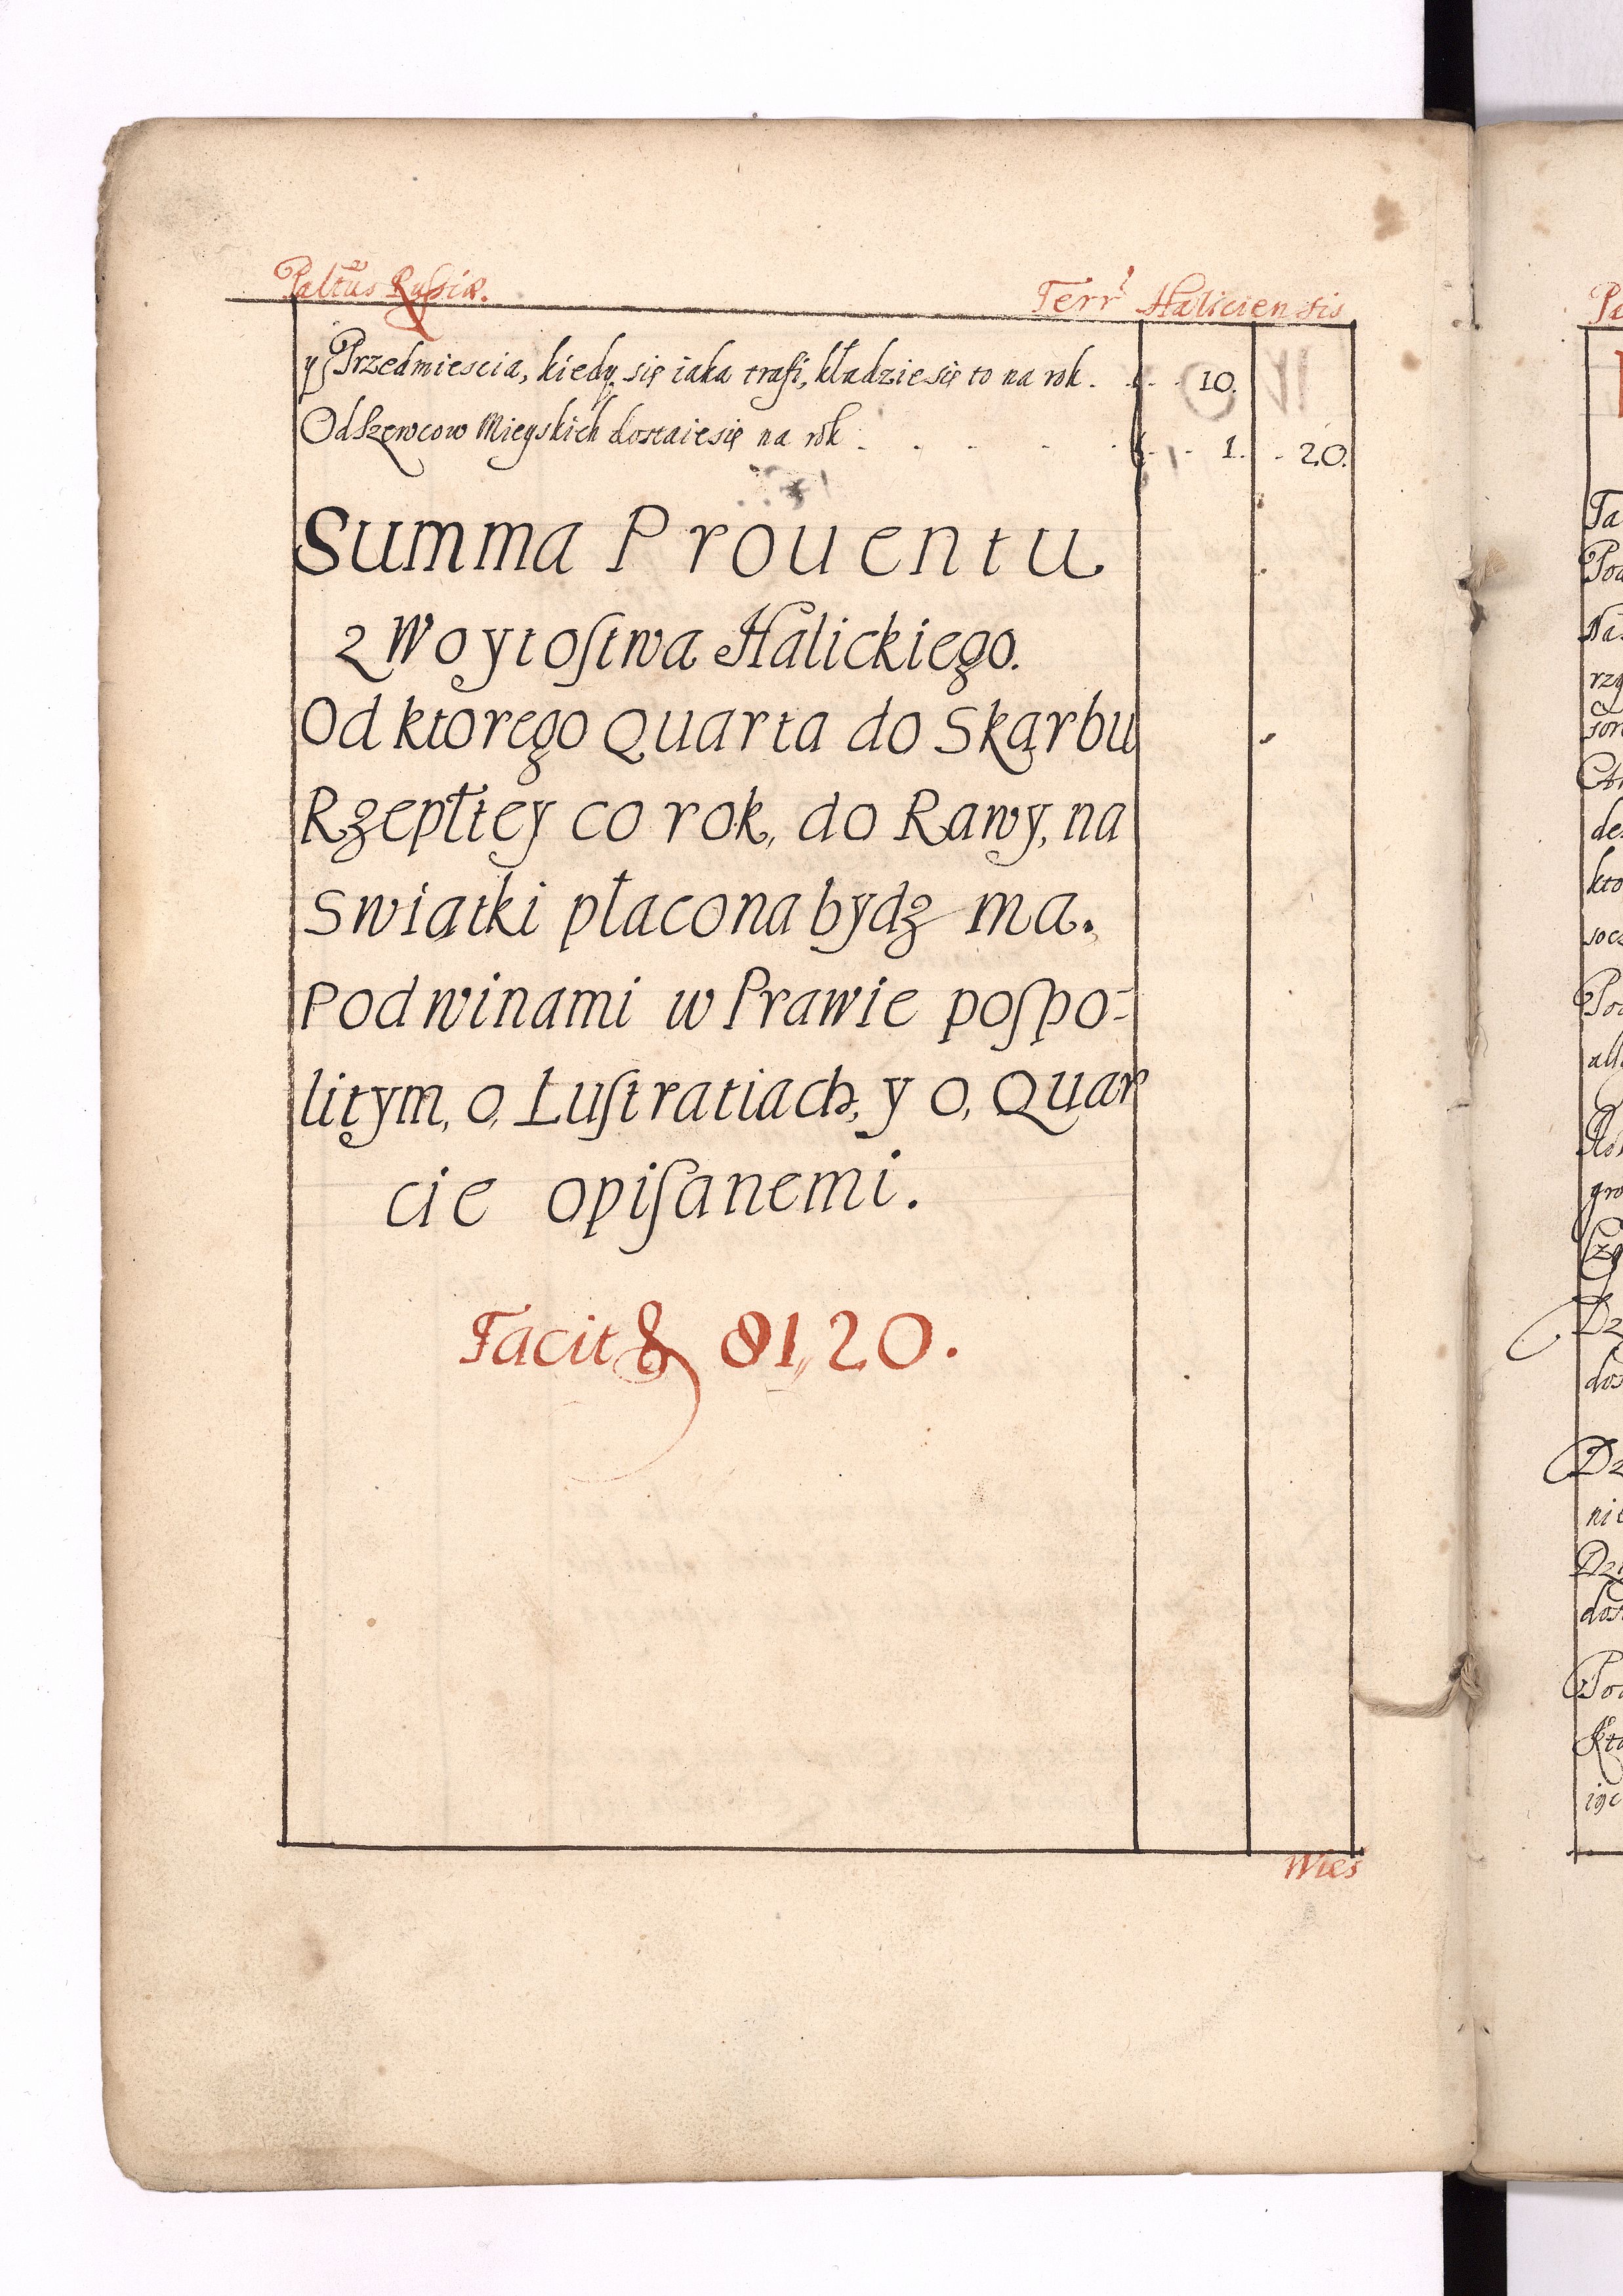 Paltũs Russiæ. Terrę Haliciensis
y Przedmiescia, kiedy się iaka trafi, kładzie się to na rok. 10.
Od Szewcow Mieyskich dostaie się na rok 1. 20.
Summa Prouentu
z Woytoſtwa Halickiego.
Od ktorego Quarta do Skarbu
Rzepłtey co rok, do Rawy, na
Swiątki płacona bydz ma.
Pod winami w Prawie poſpo-
litym, o, Luſtratiach, y o, Quar
cie opiſanemi.
Facit 81,, 20.
Wies